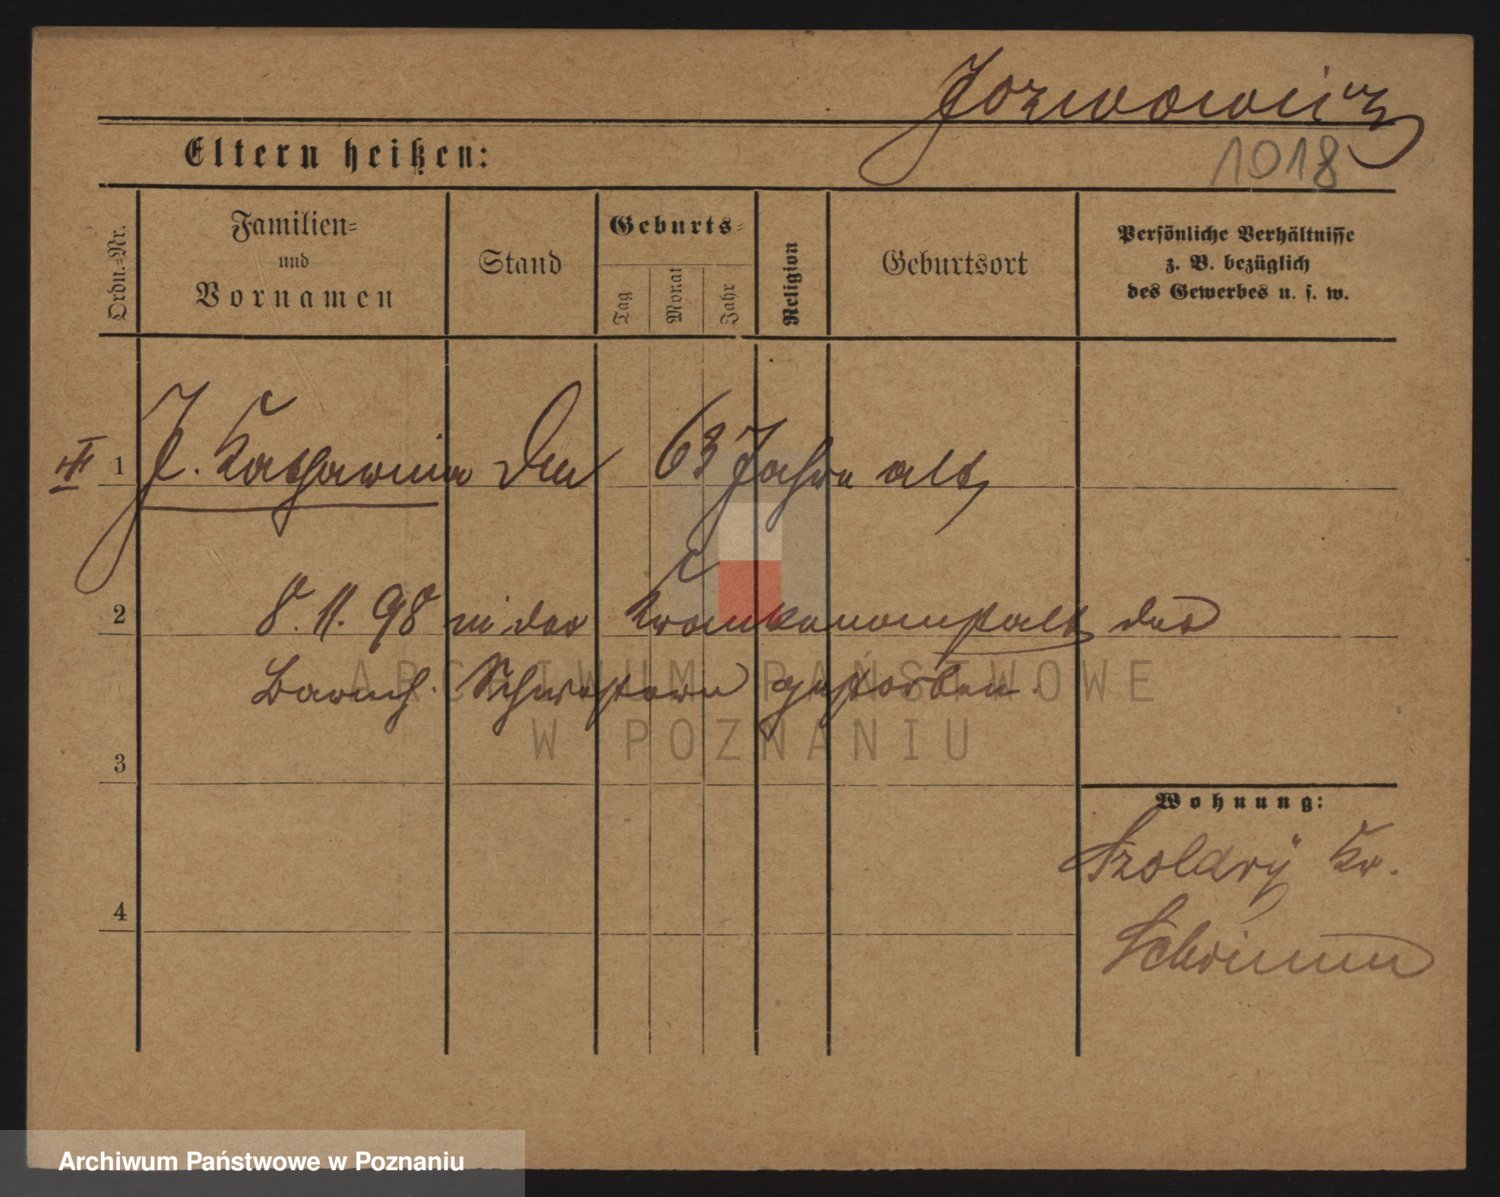 Jozwowicz
1018
Eltern heißen:
Ordn.-Nr.
Familien-
und
Vornamen
Stand
Geburts-
Tag
Monat
Jahr
Religion
Geburtsort
Persönliche Verhältnisse
z. B. bezüglich
des Gewerbes u. s. w.
1 J. Katharina den 63 Jahre alt,
2 8. 11. 98 in der Krankenanstalt der
Barmh. Schwestern gestorben.
3
Wohnung:
Szoldry Kr.
4
Schrimm
ARCHIWUM PAŃSTWOWE
W POZNANIU
Archiwum Państwowe w Poznaniu